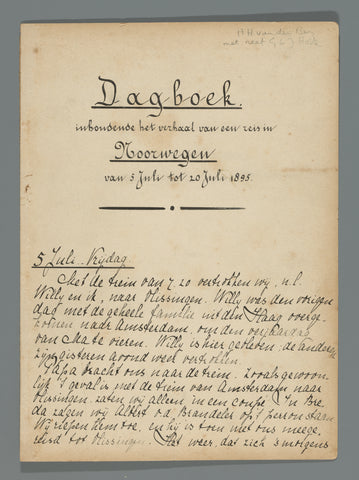 H H van der Bey
met neef G L J Hook
Dagboek.
inhoudende het verhaal van een reis in
Noorwegen
van 5 Juli tot 20 Juli 1895.
5 Juli. Vrijdag.
Met de trein van 7.20 vertrokken wij, n.l.
Willy en ik, naar Vlissingen. Willy was den vorigen
dag met de geheele familie uit den Haag overge-
komen naar Amsterdam, om den verjaardag
van Ma te vieren. Willy is hier gebleven, de anderen
zijn gisteren avond weer vertrokken.
Papa bracht ons naar de trein. Zooals gewoon-
lijk 't geval is met de trein van Amsterdam naar
Vlissingen, zaten wij alleen in een coupé. In Bre-
da zagen wij Albert v.d. Brandeler op 't perron staan
Wij riepen hem toe, en hij is toen met ons meege-
reisd tot Vlissingen. Het weer, dat zich 's morgens